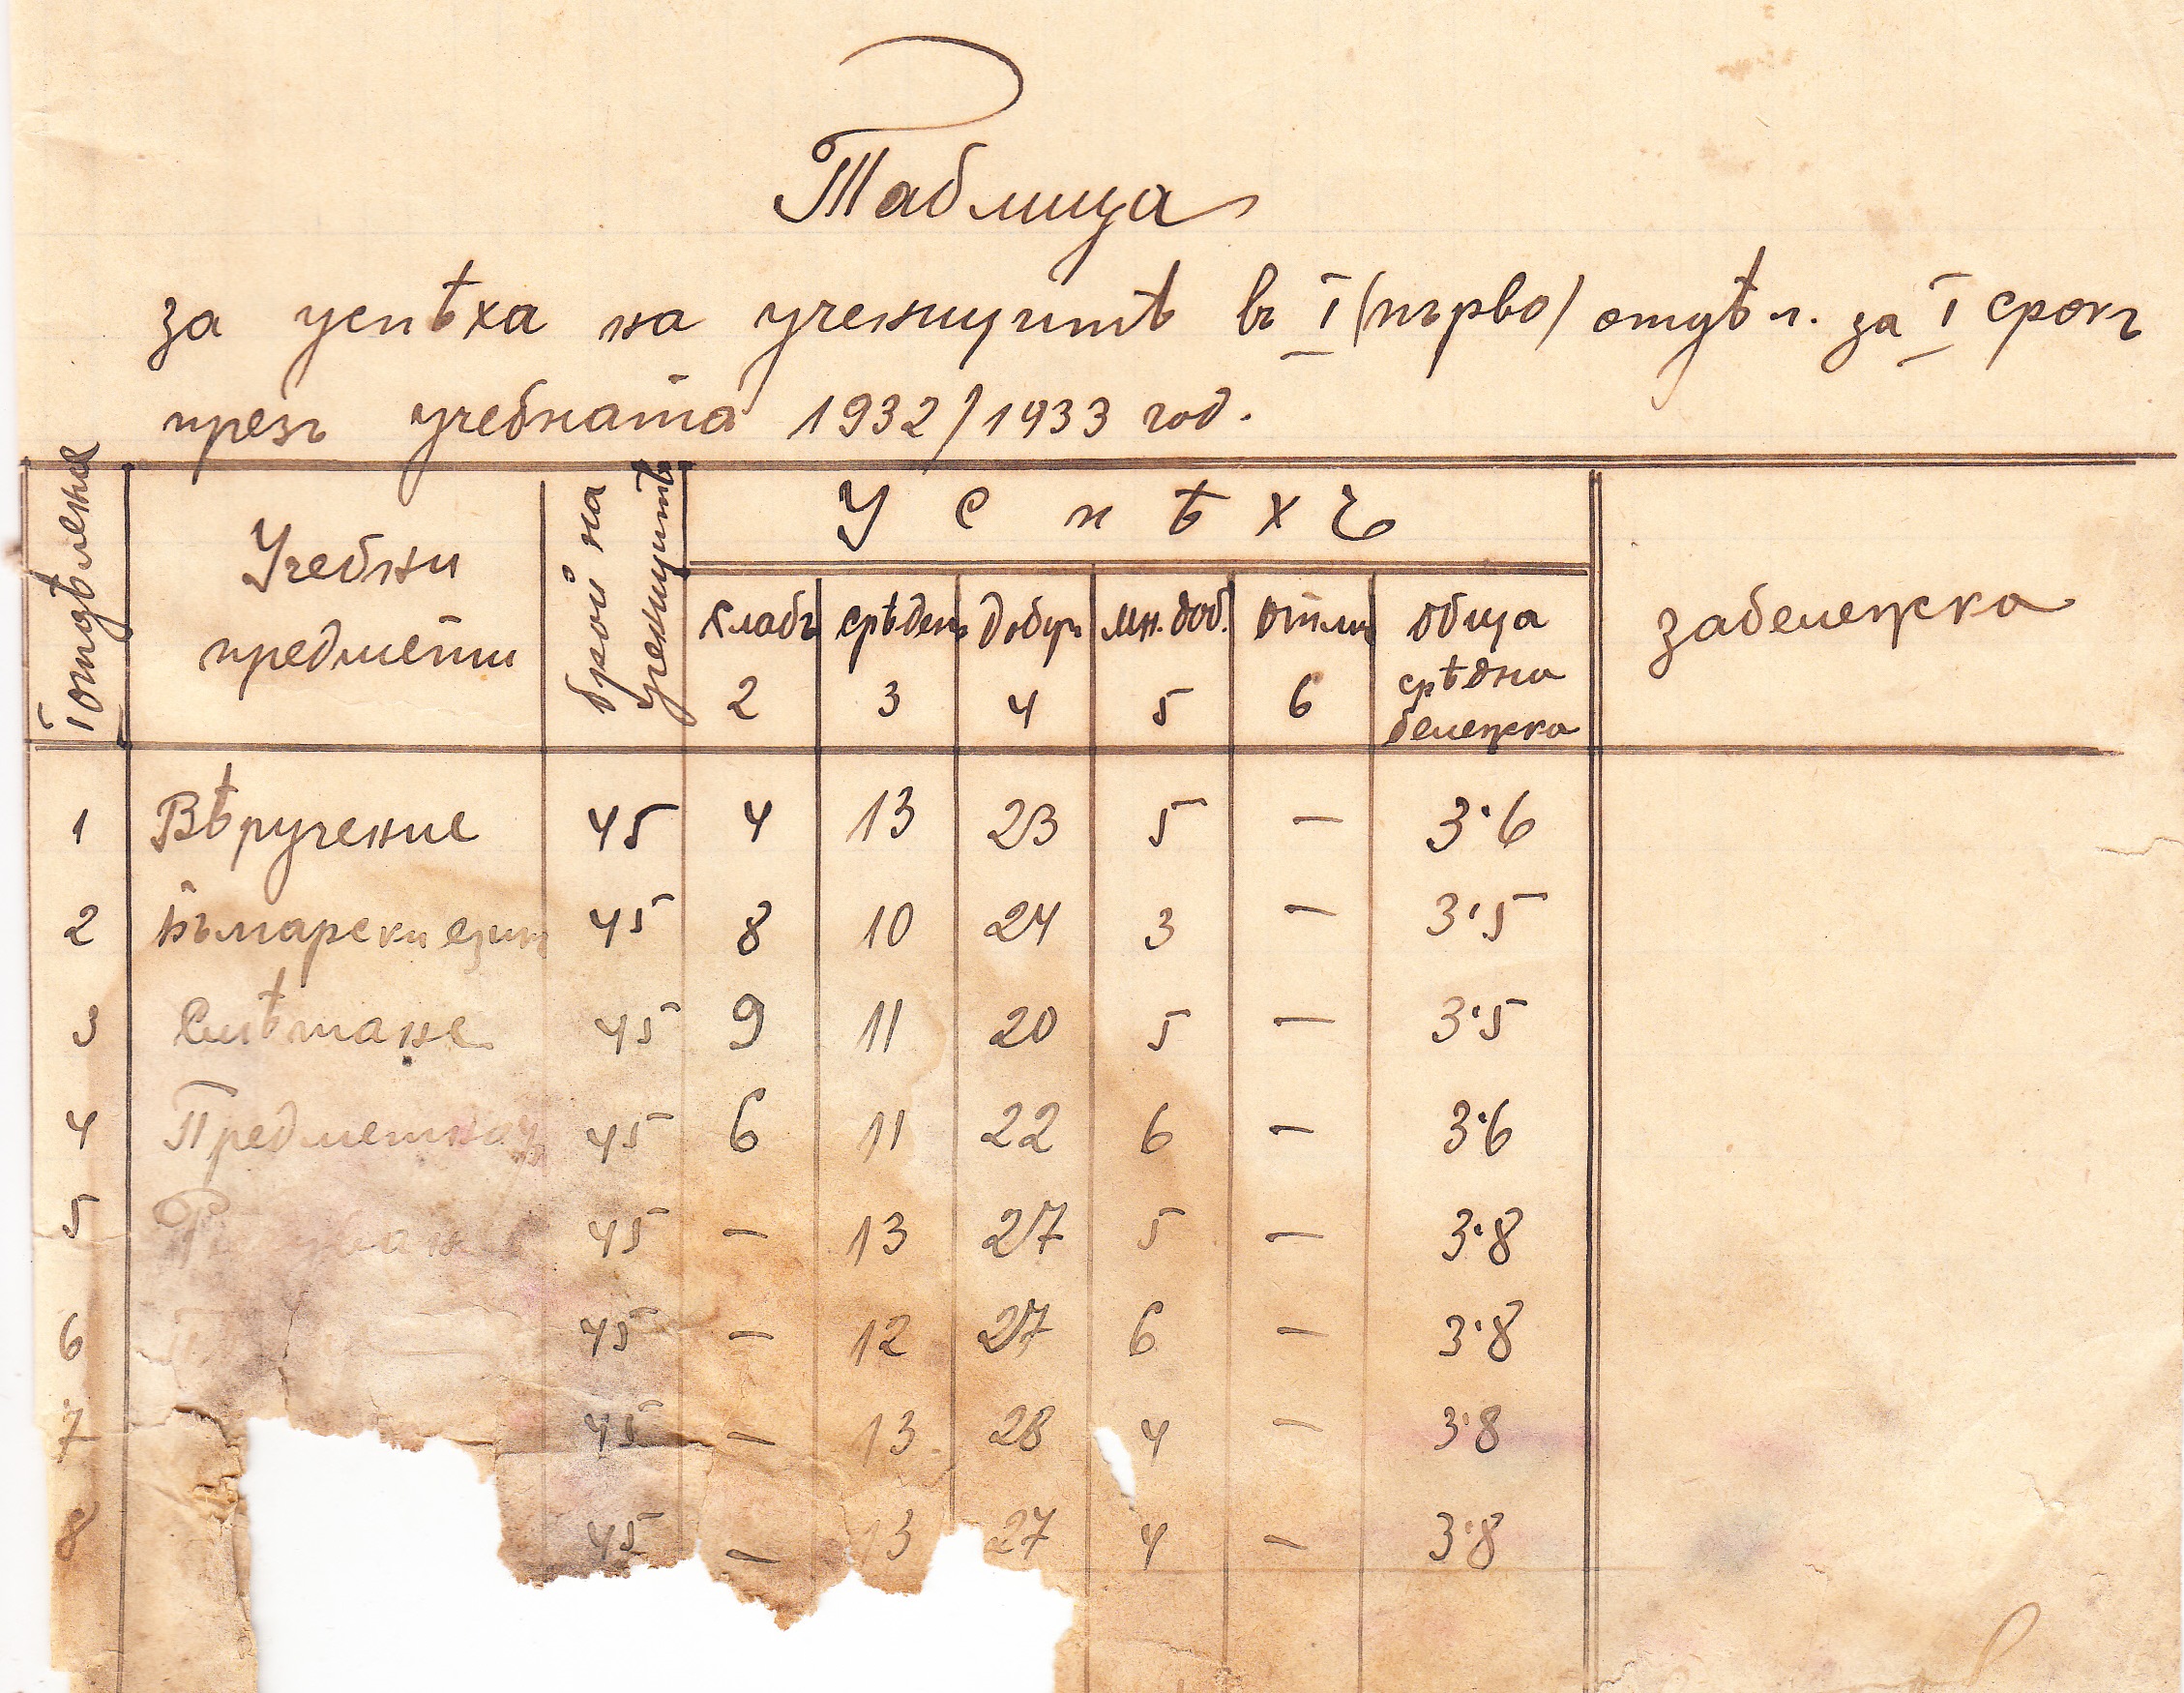 Таблица
за успѣха на ученицитѣ въ I (първо) отдѣл. за I срокъ
презъ учебната 1932/1933 год.
I отдѣление
Учебни предмети
брой на ученицитѣ
Успѣхъ
слабъ 2
срѣденъ 3
добъръ 4
мн. доб. 5
отли 6
обща срѣдна бележка
забележка
1 Вѣручение 45 4 13 23 5 — 3·6
2 Български езикъ 45 8 10 24 3 — 3·5
3 Смѣтане 45 9 11 20 5 — 3·5
4 Предметноу 45 6 11 22 6 — 3·6
5 45 — 13 27 5 — 3·8
6 45 — 12 27 6 — 3·8
7 45 — 13 28 4 — 3·8
8 45 — 13 27 4 — 3·8